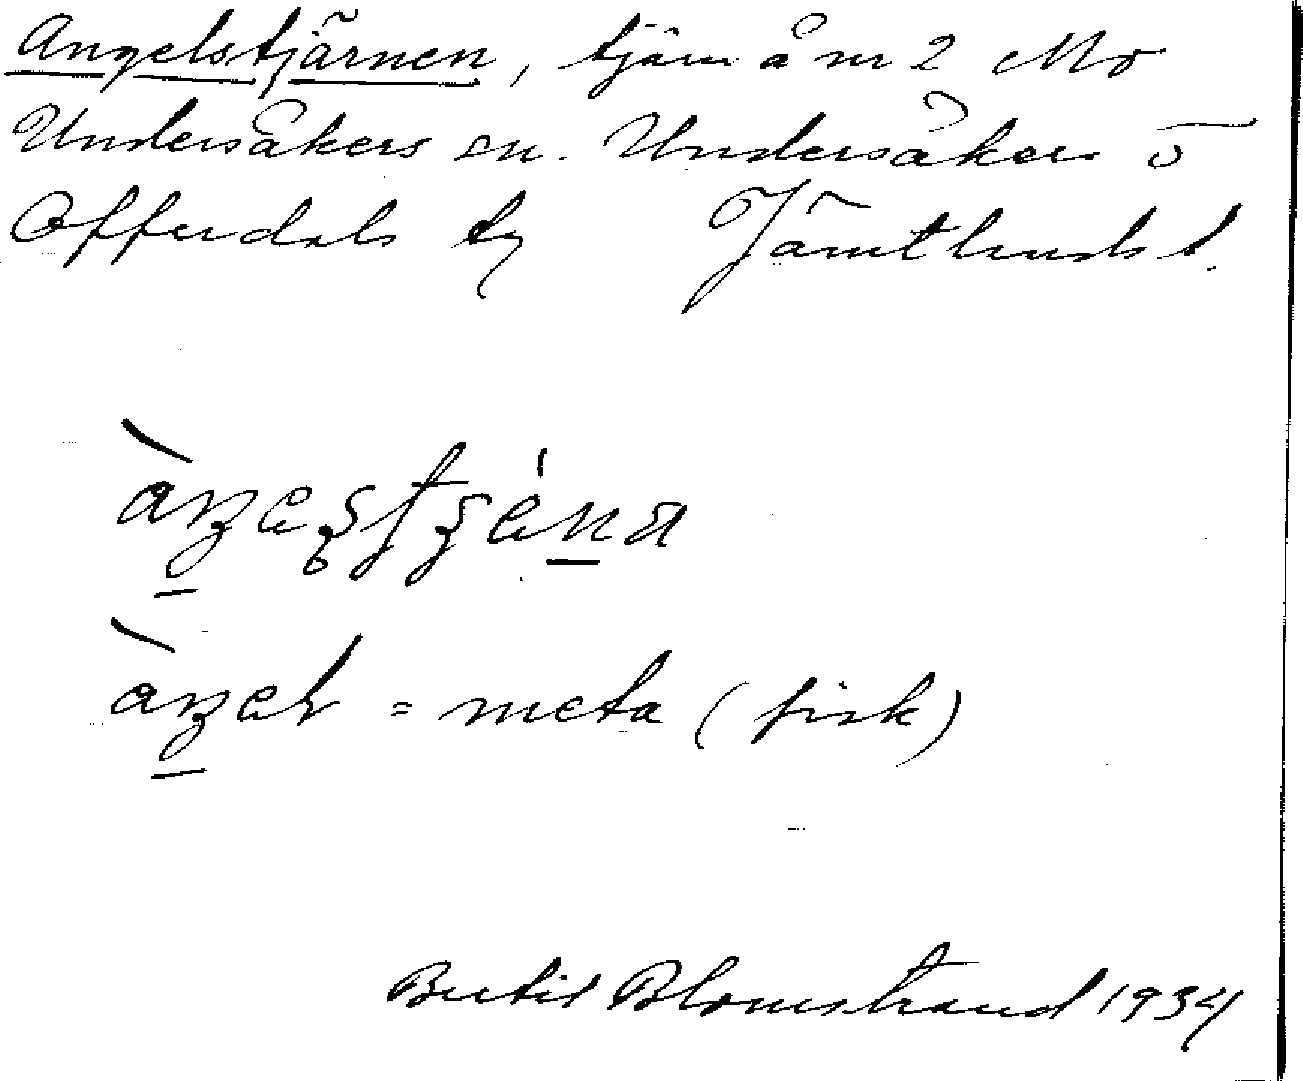 Angelstjärnen, tjärn å nr 2 Mo
Undersåkers sn. Undersåkers o
Offerdals tg Jämtlands l.
= meta (fisk)
Bertil Blomstrand 1934